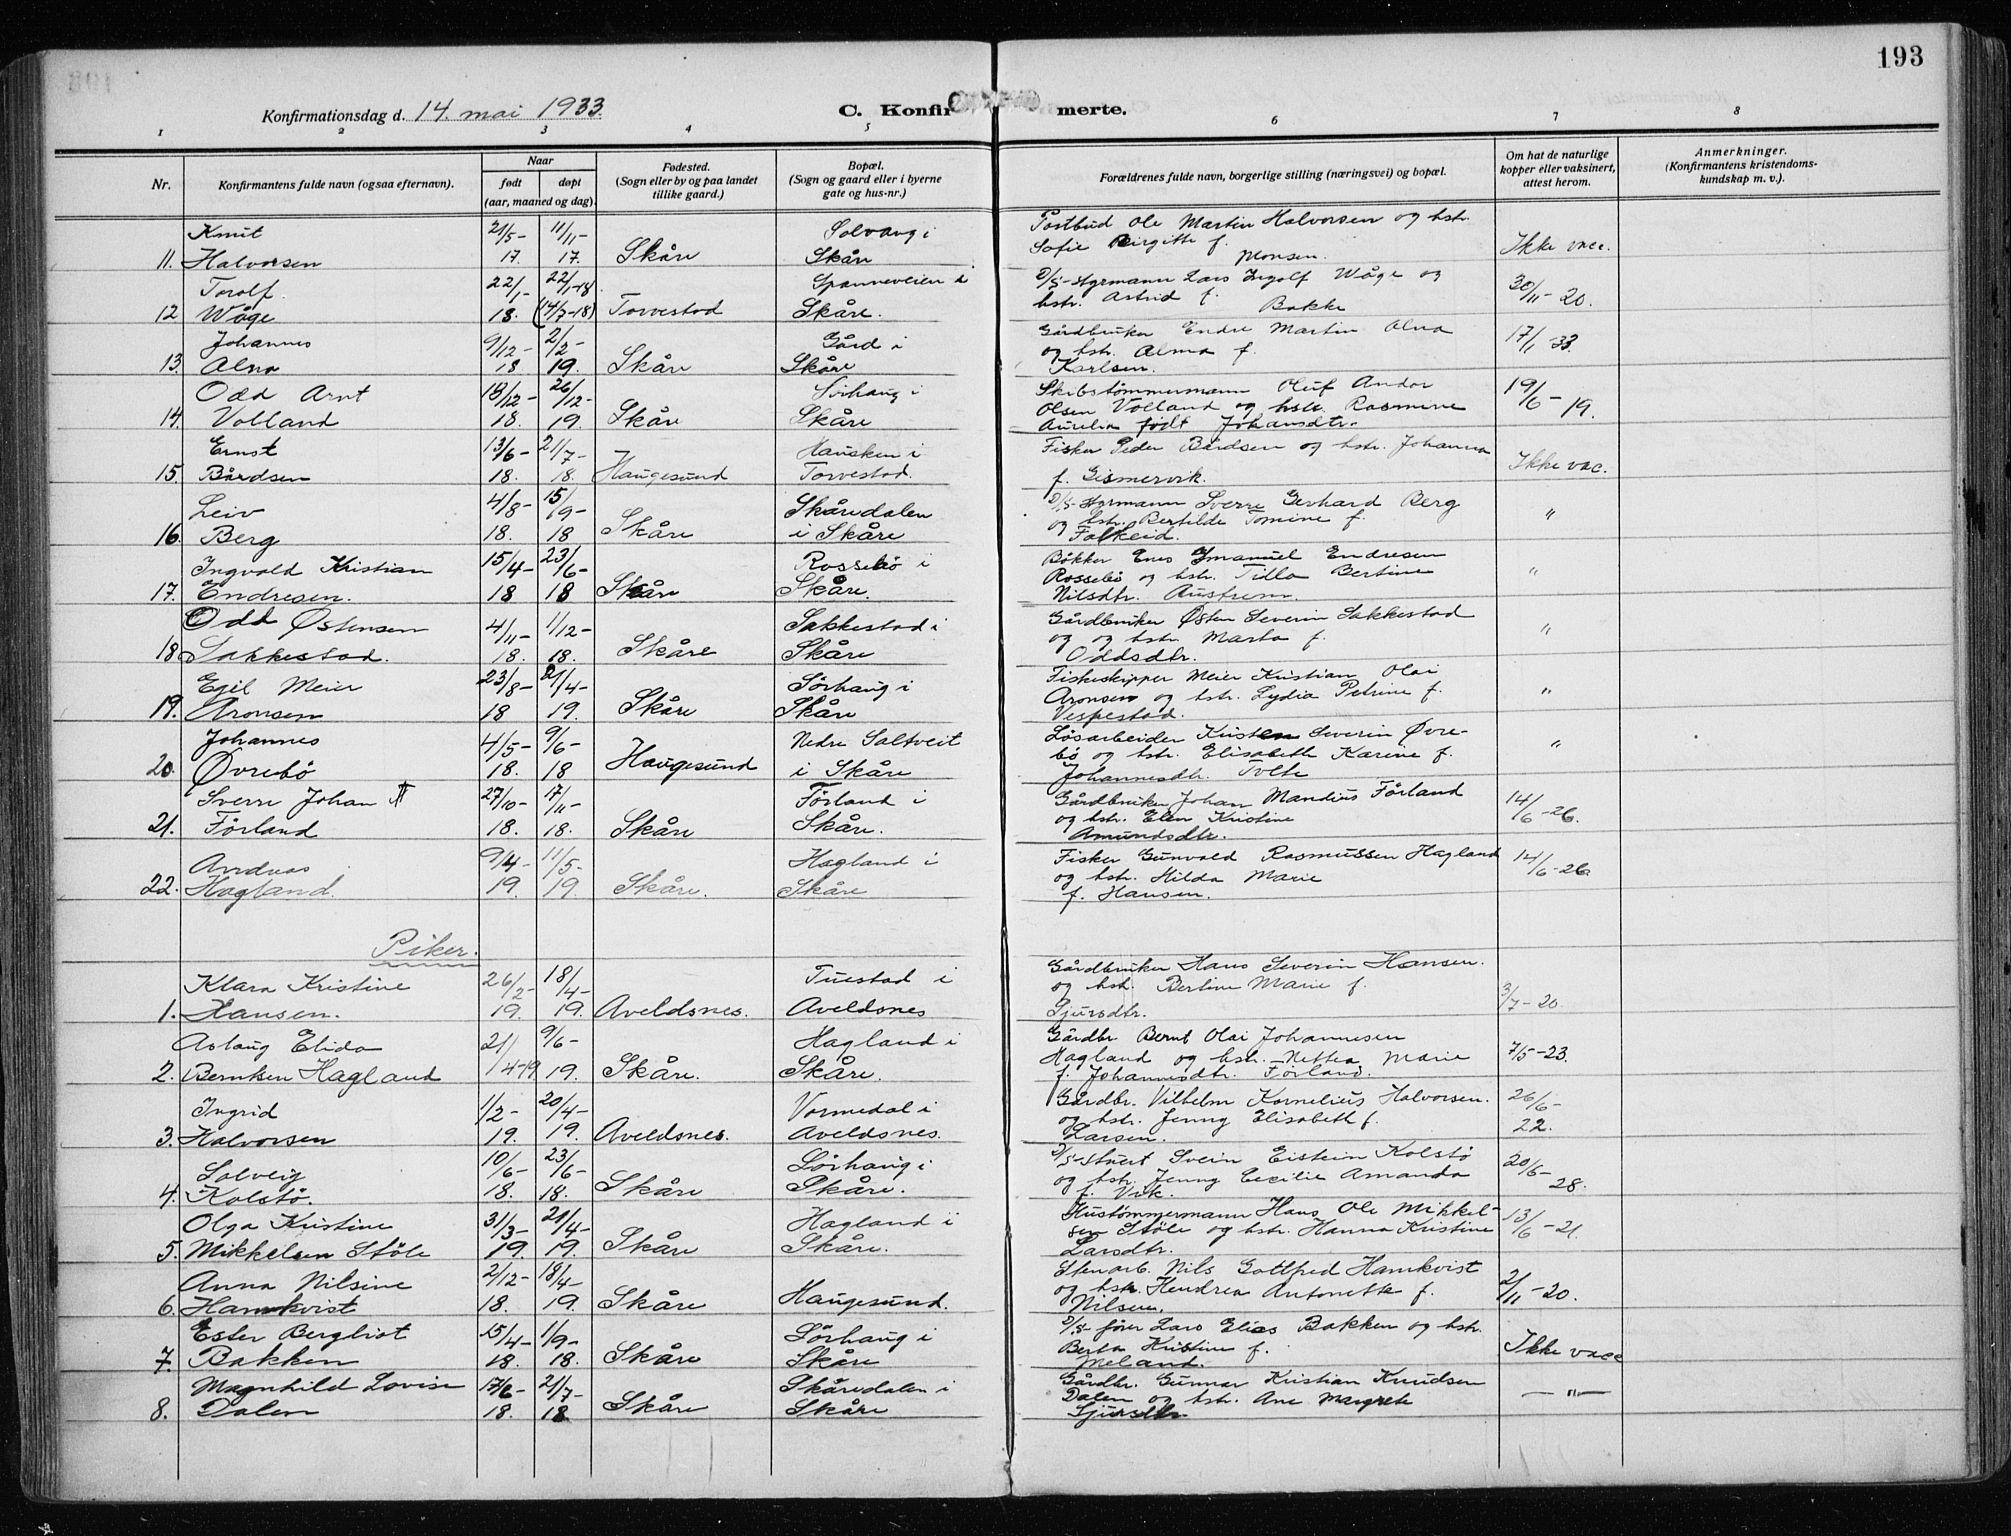 193
Konfirmationsdag d. 14. mai 1933.
C. Konfir merte.
1 2 3 4 5 6 7 8
Nr. Konfirmantens fulde navn (ogsaa efternavn). Naar født døpt (aar, maaned og dag). Fødested. (Sogn eller by og paa landet tillike gaard.) Bopæl. (Sogn og gaard eller i byerne gate og hus-nr.) Forældrenes fulde navn, borgerlige stilling (næringsvei) og bopæl. Om hat de naturlige kopper eller vaksinert, attest herom. Anmerkninger. (Konfirmantens kristendoms-kundskap m. v.).
Knut 21/5- 11/11- Solvang i Postbud Ole Martin Halvorsen og hstr.
11. Halvorsen 17. 17. Skåre Skåre Sofie Birgitte f. Monsen. Ikke vacc.
Torolf 22/1- 22/1-18. Spanneveien i D/S-styrmann Lars Ingolf Wåge og
12 Wåge 18. (14/7-18) Torvestad Skåre. hstr. Astrid f. Bakke 30/11-20.
Johannes 9/12- 2/2- Gård i Gårdbruker Endre Martin Alna
13. Alna 18 19. Skåre Skåre og hstr. Alma f. Karlsen. 17/1-33.
Odd Arnt 18/12- 26/12- Sörhaug i Skibstømmermann Oluf Andor
14. Volland 18. 19. Skåre Skåre Olsen Volland og hstr. Rasmine Aurelia født Johansdtr. 19/6-19.
Ernst 13/6- 21/7- Hausken i Fisker Peder Bårdsen og hstr. Johanna
15. Bårdsen 18. 18. Haugesund Torvestad. f. Gismervik. Ikke vac.
Leiv 4/8- 15/9- Skåredalen D/S-styrmann Sverre Gerhard Berg
16. Berg 18. 18 Skåre i Skåre og hstr. Bertilde Tomine f. Falkeid. "
Ingvald Kristian 15/4- 23/6- Rossebö i Bøkker Enes Imanuel Endresen
17. Endresen. 18 18 Skåre Skåre. Rossebö og hstr. Tilla Bertine Nilsdtr. Austrem. "
Odd Østensen 4/11- 1/12- Sakkestad i Gårdbruker Østen Severin Sakkestad
18 Sakkestad. 18. 18. Skåre Skåre og og hstr. Marta f. Oddsdtr. "
Egil Meier 23/8- 21/4- Sörhaug i Fiskeskipper Meier Kristian Olai
19. Aronsen 18 19. Skåre Skåre Aronsen og hstr. Lydia Petrine f. Vespestad. "
Johannes 4/5- 9/6- Nedre Saltveit Løsarbeider Kristen Severin Øvre-
20. Øvrebö 18. 18 Haugesund i Skåre bö og hstr. Elisabeth Karine f. Johannesdtr. "
Sverre Johan 27/10- 17/11- Förland i Gårdbruker Johan Mandius Förland
21. Förland 18. 18. Skåre Skåre. og hstr. Elen Kristine Amundsdtr. 14/6-26.
Andreas 9/4- 11/5- Hagland i Fisker Gunvald Rasmussen Hagland
22. Hagland. 19. 19. Skåre. Skåre og hstr. Hilda Marie f. Hansen. 14/6-26
Piker.
Klara Kristine 26/2- 18/4- Tuestad i Gårdbruker Hans Severin Hansen.
1. Hansen. 19. 19. Aveldsnes. Aveldsnes og hst. Bertine Marie f. Sjursdtr. 3/7-20.
Aslaug Elida 21/ 9/6- Hagland i Gårdbr Bernt Olai Johannesen
2. Berntsen Hagland 4-19 19. Skåre. Skåre. Hagland og hstr. Nettea Marie f. Johannesdtr. Förland. 7/5-23.
Ingrid 1/2- 20/4- Vormedal i Gårdbr. Vilhelm Kornelius Halvorsen.
3. Halvorsen 19. 19. Aveldsnes. Aveldsnes. og hstr. Jenny Elisabeth f. Larsen. 26/6-22.
Solveig 10/6- 23/6- Sörhaug i D/S-stuert Svein Eistein Kolstö
4. Kolstö. 18. 18. Skåre Skåre. og hstr. Jenny Cecilie Amanda f. Vik. 20/6-28.
Olga Kristine 31/3- 21/4- Hagland i Hustømmermann Hans Ole Mikkel-
5. Mikkelsen Stöle 19. 19. Skåre Skåre. sen Stöle og hstr. Hanna Kristine Larsdtr. 13/6-21.
Anna Nilsine 2/12- 18/4- Stenarb. Nils Gottfred Hamkvist
6. Hamkvist 18. 19. Skåre Haugesund. og hstr. Hendrea Antonette f. Nilsen. 2/11-20.
Ester Bergliot 15/4- 1/9- Sörhaug i D/S-fører Lars Elias Bakken og hstr.
7. Bakken 18. 18. Skåre Skåre Berta Kristine f. Meland. Ikke vacc
Magnhild Lovise 17/6- 21/7- Skåredalen i Gårdbr. Gunnar Kristian Knudsen
8. Dalen 18 18 Skåre Skåre Dalen og hstr. Ane Margrete Sjursdtr — " —